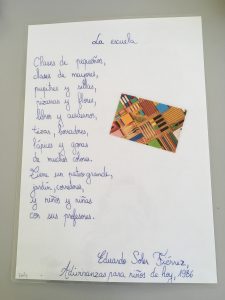 La escuela
Clases de pequeños,
clases de mayores,
pupitres y sillas,
pizarras y flores,
libros y cuadernos,
tizas, borradores,
lápices y gomas
de muchos colores.
Tiene un patio grande,
jardín, corredores,
y niños y niñas
con sus profesores.
Eduardo Soler Fiérrez,
Adivinanzas para niños de hoy, 1986